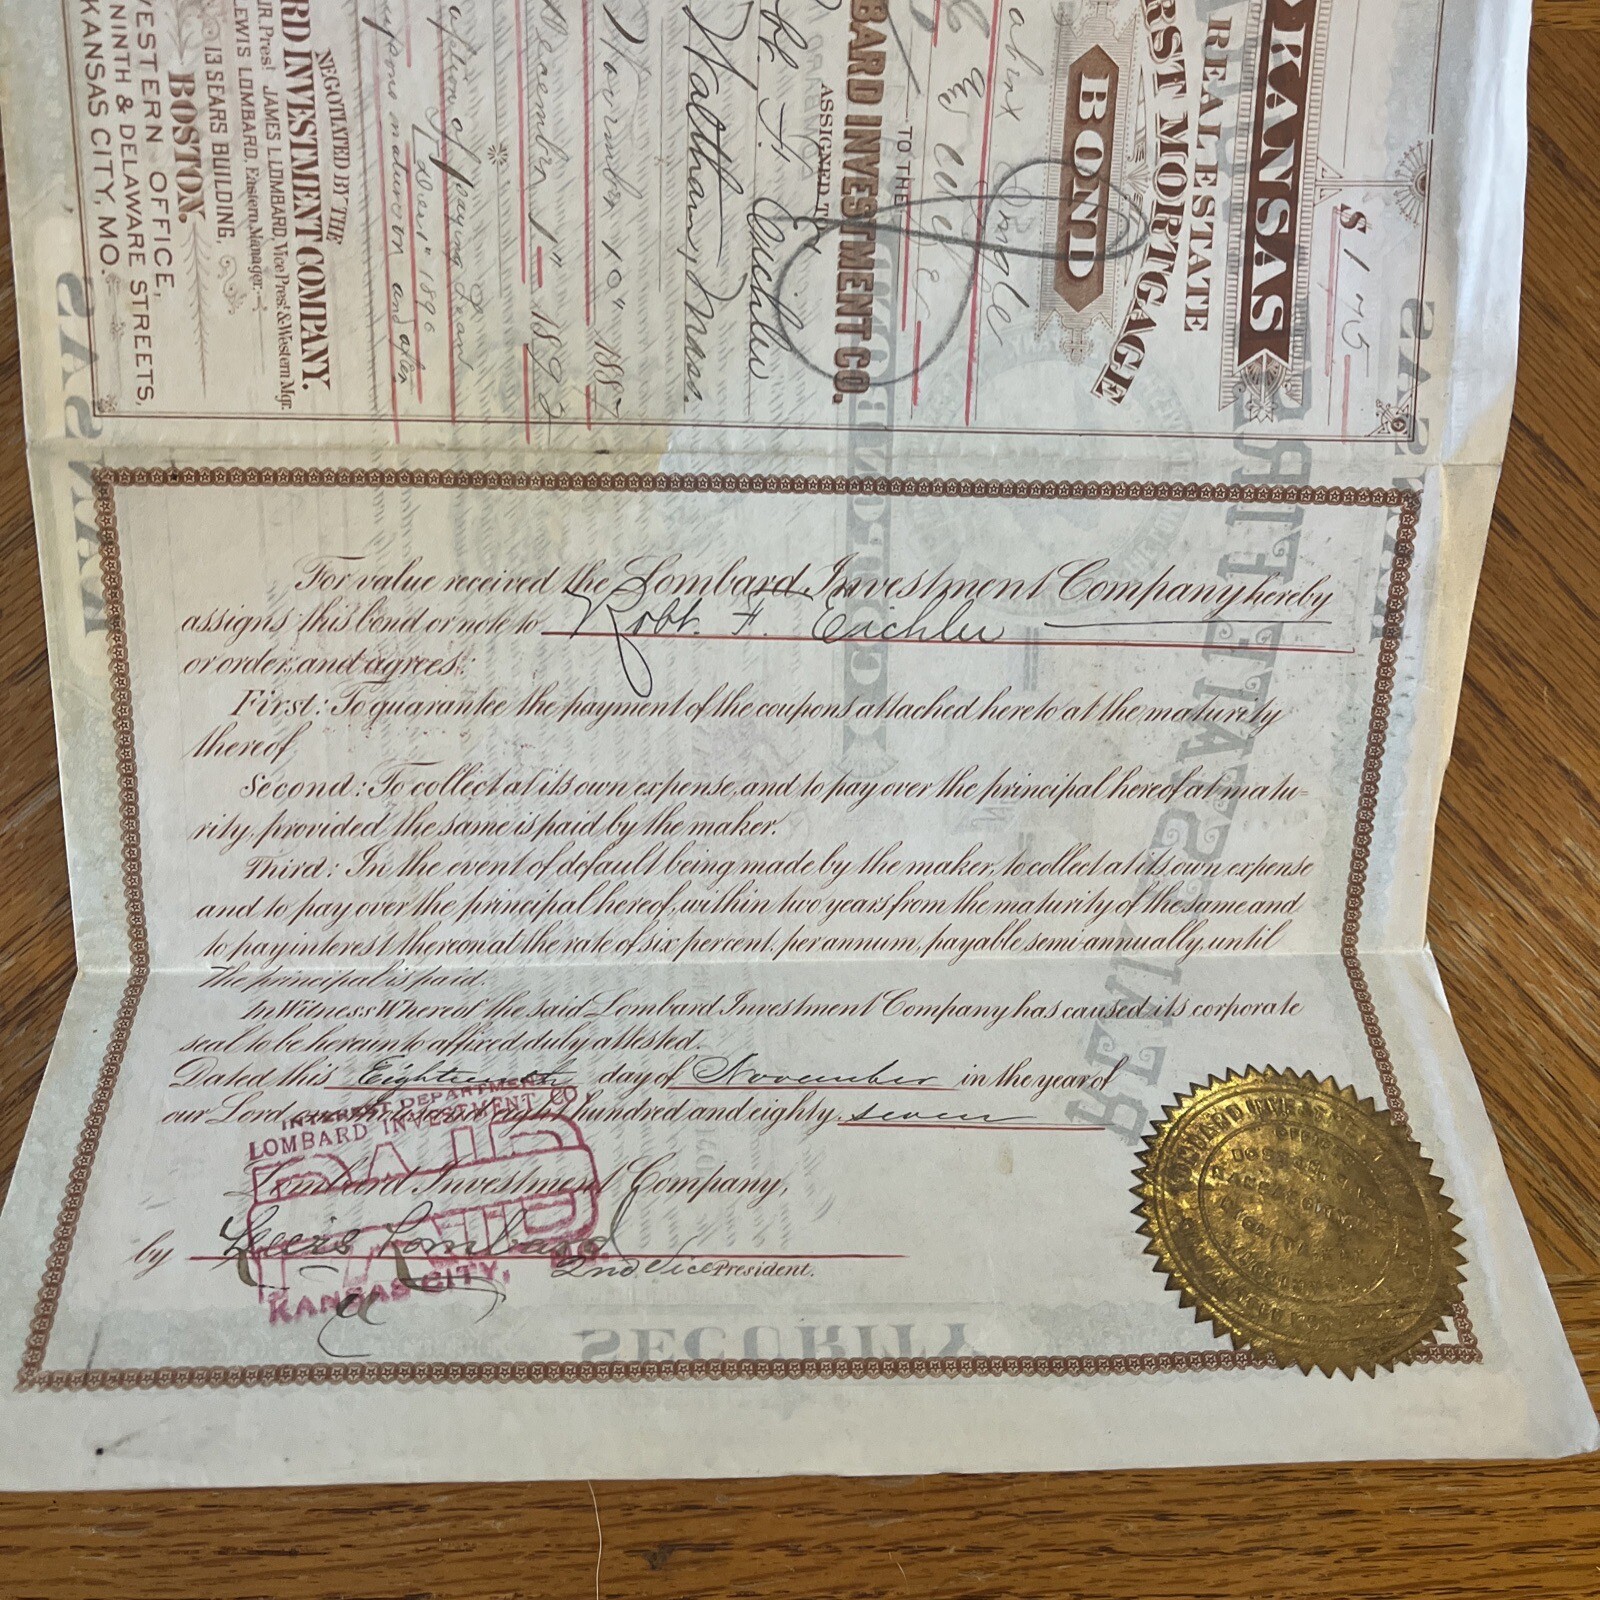 $ 175
KANSAS
REAL ESTATE
RST MORTGAGE
BOND
TO THE
BARD INVESTMENT CO.
ASSIGNED TO
Robt. F. Eichler
Waltham, Mass.
November 10" 1887
December 1" 1892
option of paying
Dec 1" 1896
coupons mature on and after
NEGOTIATED BY THE
RD INVESTMENT COMPANY.
JAMES L. LOMBARD, Vice Pres't & Western Mgr.
LEWIS LOMBARD, Eastern Manager.
13 SEARS BUILDING,
BOSTON.
WESTERN OFFICE,
NINTH & DELAWARE STREETS,
KANSAS CITY, MO.
For value received the Lombard Investment Company hereby
assigns this bond or note to Robt. F. Eichler
or order, and agrees:
First: To guarantee the payment of the coupons attached hereto at the maturity
thereof
Second: To collect at its own expense, and to pay over the principal hereof at matu-
rity, provided the same is paid by the maker.
Third: In the event of default being made by the maker, to collect at its own expense
and to pay over the principal hereof, within two years from the maturity of the same and
to pay interest thereon at the rate of six per cent. per annum, payable semi-annually, until
the principal is paid.
In Witness Whereof the said Lombard Investment Company has caused its corporate
seal to be hereunto affixed, duly attested.
Dated this Eighteenth day of November in the year of
our Lord one thousand eight hundred and eighty seven
INTEREST DEPARTMENT
LOMBARD INVESTMENT CO.
PAID
KANSAS CITY,
Lombard Investment Company,
by Lewis Lombard
2nd Vice President.
SECURITY